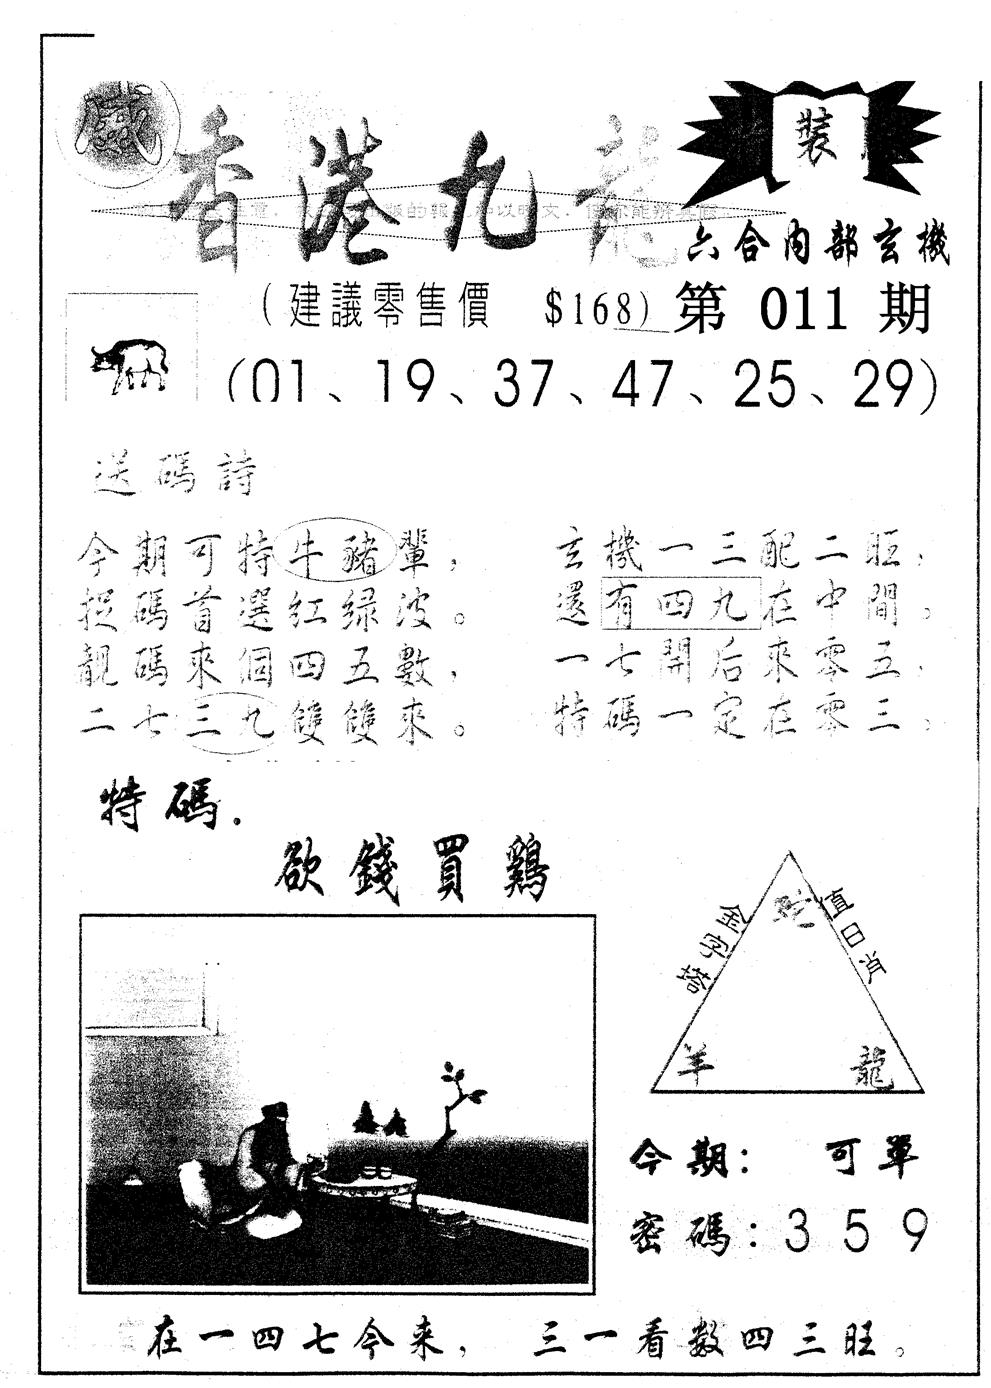 裝
香港九龍
六合內部玄機
（建議零售價 $168）第 011 期
（01、19、37、47、25、29）
送碼詩
今期可特牛豬輩，
捉碼首選紅绿波。
靚碼來個四五數，
二七三九雙雙來。
玄機一三配二旺，
還有四九在中間。
一七開后來零五，
特碼一定在零三。
特碼．
欲錢買鷄
金字塔
值日肖
蛇
羊
龍
今期： 可單
密碼：3 5 9
在一四七今来， 三一看数四三旺。